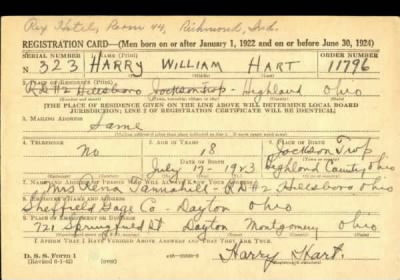 Rex Hotel, Room 44, Richmond, Ind.
REGISTRATION CARD—(Men born on or after January 1, 1922 and on or before June 30, 1924)
SERIAL NUMBER 1. NAME (Print) ORDER NUMBER
N 323 HARRY WILLIAM HART 11796
2. PLACE OF RESIDENCE
RD#2 Hillsboro Jackson twp - Highland Ohio
[THE PLACE OF RESIDENCE GIVEN ON THE LINE ABOVE WILL DETERMINE LOCAL BOARD
JURISDICTION; LINE 2 OF REGISTRATION CERTIFICATE WILL BE IDENTICAL]
3. MAILING ADDRESS
Same
4. TELEPHONE 5. AGE IN YEARS 6. PLACE OF BIRTH
No 18 Jackson Twp
DATE OF BIRTH Highland County
July 17 - 1923 Ohio
7. NAME AND ADDRESS OF PERSON WHO WILL ALWAYS KNOW YOUR ADDRESS
Mrs Rena Tannehill - RD#2 Hillsboro Ohio
8. EMPLOYER'S NAME AND ADDRESS
Sheffield Gage Co - Dayton Ohio
9. PLACE OF EMPLOYMENT OR BUSINESS
721 Springfield St Dayton Montgomery Ohio
I AFFIRM THAT I HAVE VERIFIED ABOVE ANSWERS AND THAT THEY ARE TRUE.
D. S. S. Form 1
(Revised 6-1-42) (over)
Harry Hart.